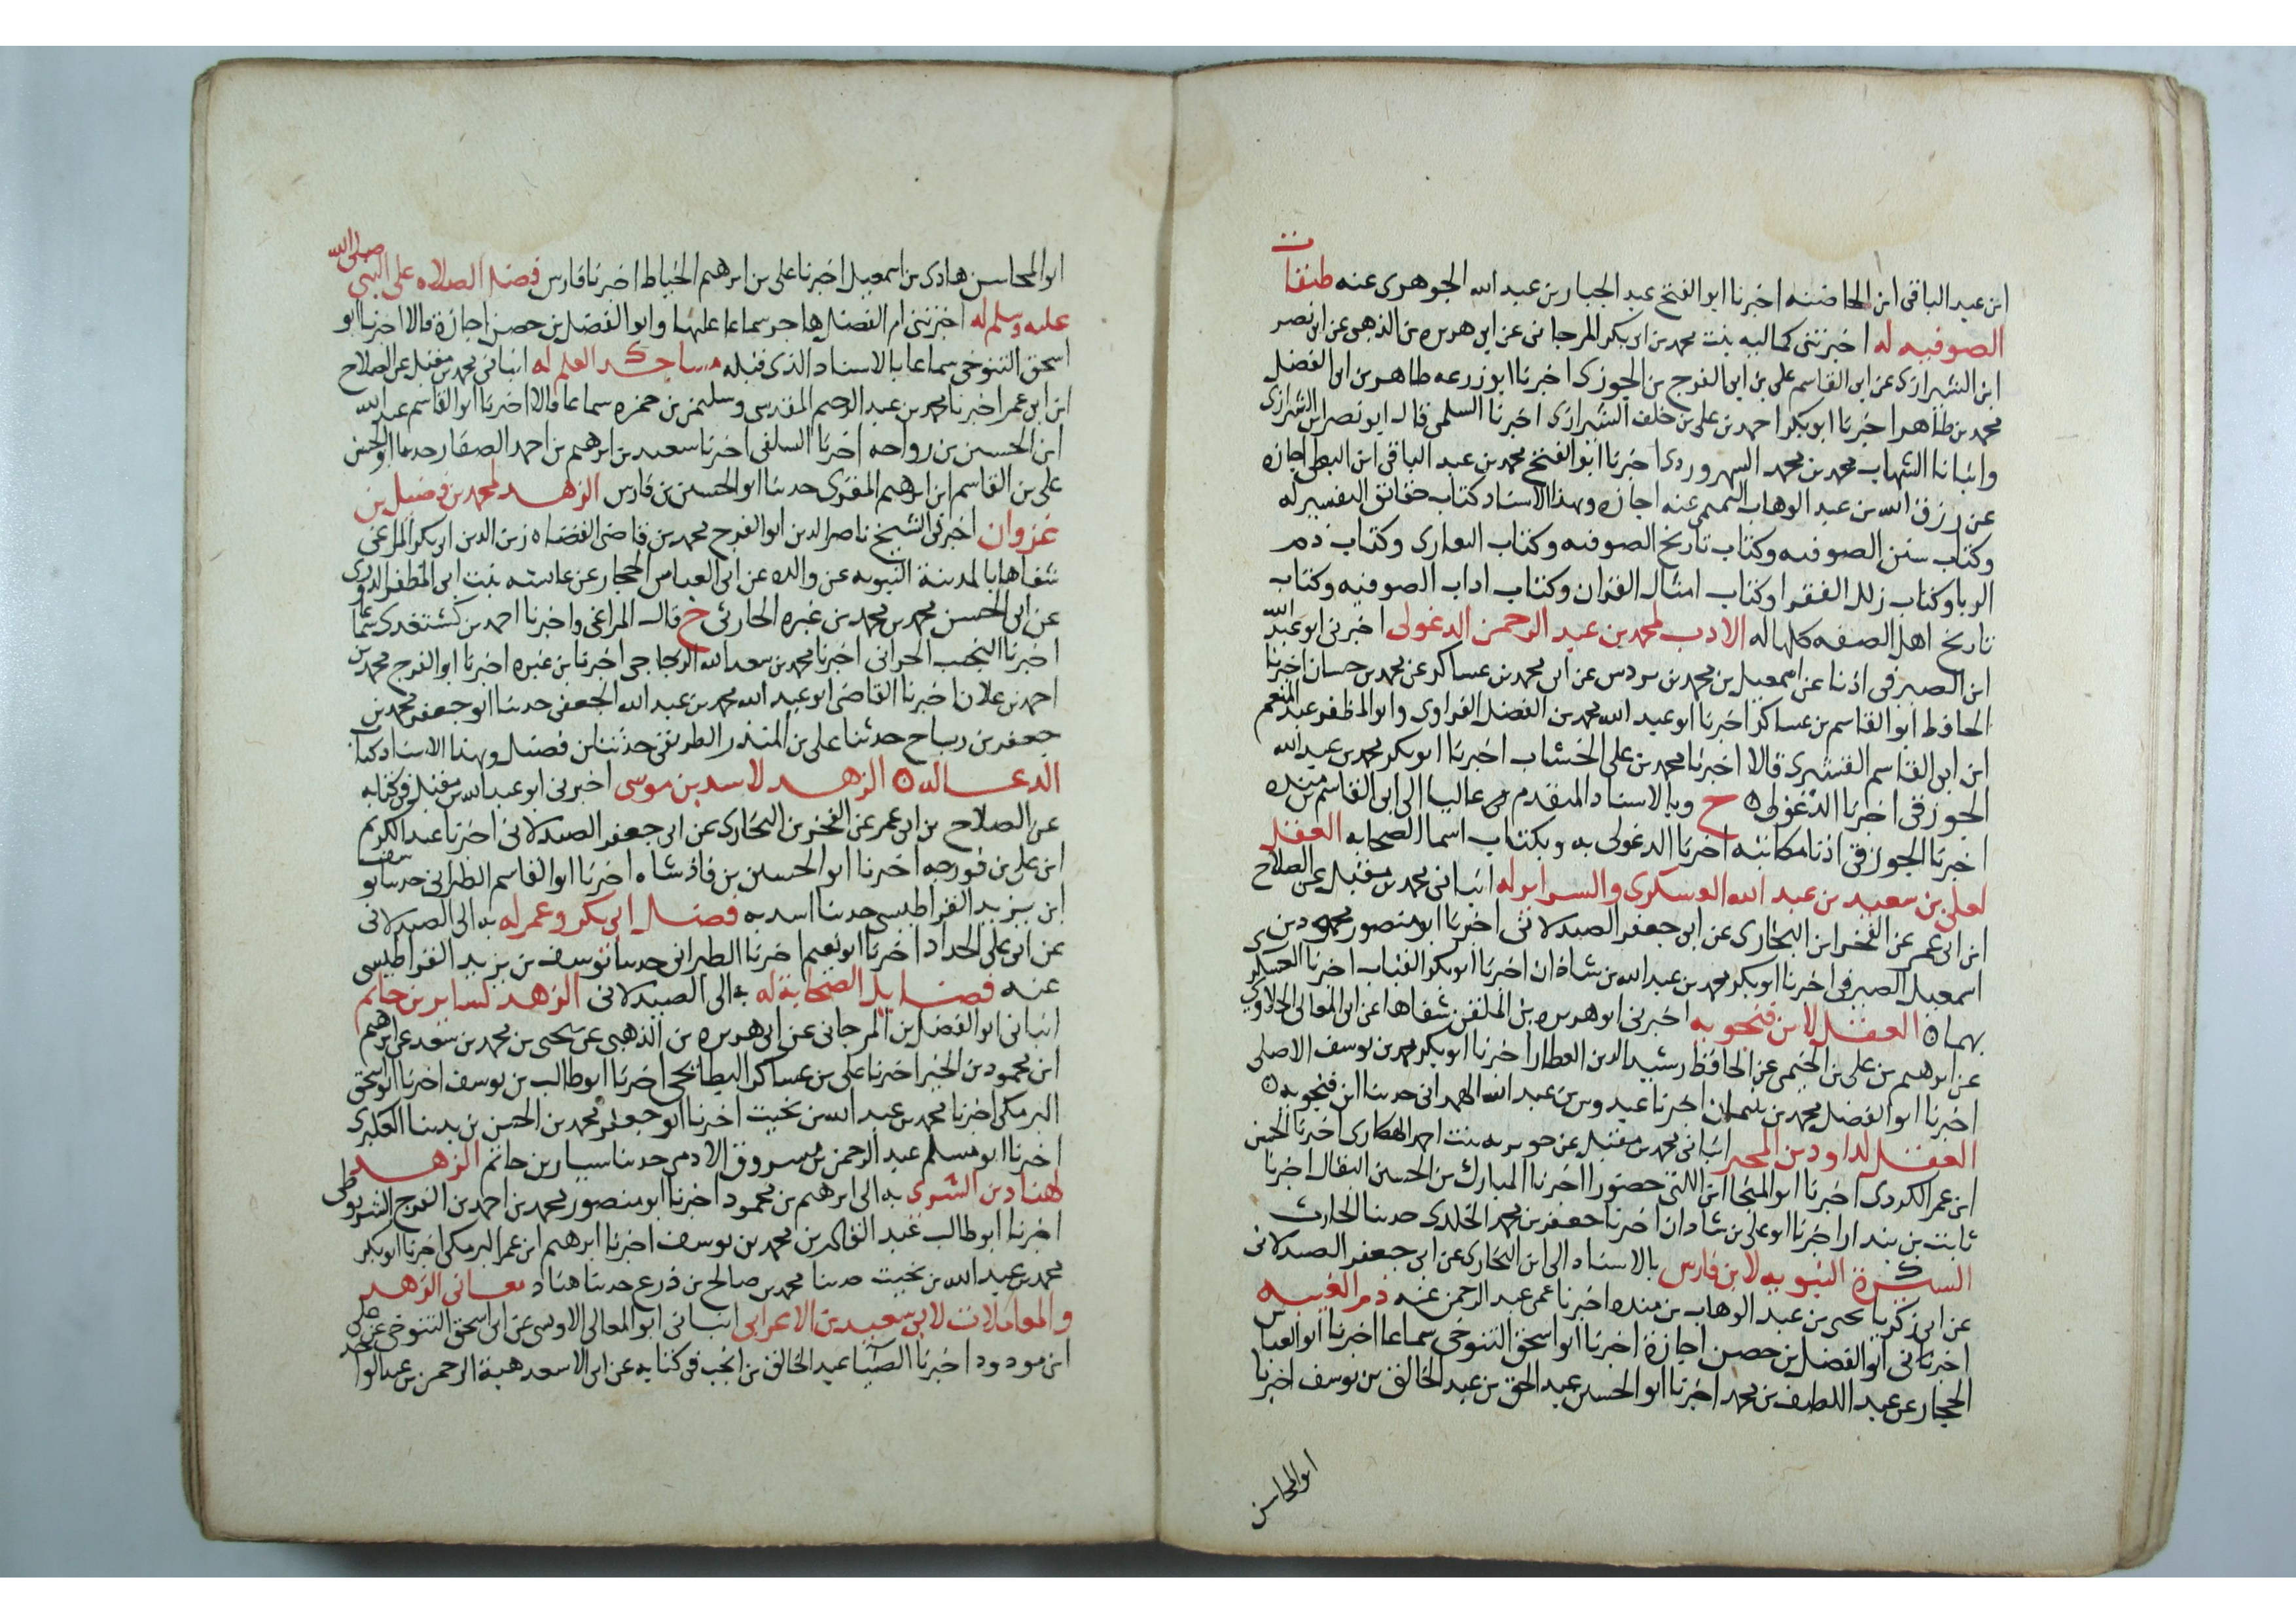 ابن عبد الباقي ابن الحاضنه اخبرنا ابو الفتح عبد الجبار بن عبد الله الجوهرى عنه طبقات
الصوفيه له اخبرتني كماليه بنت محمد بن ابي بكر المرجاني عن ابي هريره بن الذهبي عن ابي نصر
ابن الشيرازي عن ابي القاسم علي بن ابي الفرج بن الجوزي اخبرنا ابو زرعه طاهر بن ابي الفضل
محمد بن طاهر اخبرنا ابو بكر احمد بن علي بن خلف الشيرازي اخبرنا السلمي قال ابو نصر ابن الشيرازي
وانبانا الشهاب محمد بن محمد السهروردي اخبرنا ابو الفتح محمد بن عبد الباقي ابن البطي اجازه
عن رزق الله بن عبد الوهاب التميمي عنه اجازه وبهذا الاسناد كتاب حقائق التفسير له
وكتاب سنن الصوفيه وكتاب تاريخ الصوفيه وكتاب وكتاب ذم
الربا وكتاب زلل الفقرا وكتاب امثال القران وكتاب اداب الصوفيه وكتاب
تاريخ اهل الصفه كلها له الادب لمحمد بن عبد الرحمن الدغولي اخبرني ابو عبد الله
ابن الصيرفي اذنا عن اسمعيل بن محمد بن بردس عن ابي محمد بن عساكر عن محمد بن حسان اخبرنا
الحافظ ابو القاسم بن عساكر اخبرنا ابو عبد الله محمد بن الفضل الفراوي وابو المظفر عبد المنعم
ابن ابي القاسم القشيري قالا اخبرنا محمد بن علي الخشاب اخبرنا ابو بكر محمد بن عبد الله
الجوزقي اخبرنا الدغولي ح وبالاسناد المتقدم عاليا الى ابي القاسم بن منده
اخبرنا الجوزقي اذنا مكاتبه اخبرنا الدغولي به وبكتاب اسما الصحابه العقل
لعلي بن سعيد بن عبد الله العسكري والسراير له انباني محمد بن مقبل عن الصلاح
ابن ابي عمر عن الفخر ابن البخاري عن ابي جعفر الصيدلاني اخبرنا ابو منصور محمود بن
اسمعيل الصيرفي اخبرنا ابو بكر محمد بن عبد الله بن شاذان اخبرنا ابو بكر القباب اخبرنا العسكري
بهما العقل لابن فنجويه اخبرني ابو هريره بن الملقن شفاها عن ابي المعالي الحلاوي
عن ابرهيم بن علي بن الخيمي عن الحافظ رشيد الدين العطار اخبرنا ابو بكر محمد بن يوسف الاصلي
اخبرنا ابو الفضل محمد بن بنيمان اخبرنا عبدوس بن عبد الله الهمداني حدثنا ابن فنجويه
العقل لداود بن المحبر انباني محمد بن مقبل عن جويريه بنت احمد الهكاري اخبرنا الحسن
ابن عمر الكردي اخبرنا ابو المنجا ابن اللتي حضورا اخبرنا المبارك بن الحسين البقال اخبرنا
ثابت بن بندار اخبرنا ابو علي بن شاذان اخبرنا جعفر بن محمد الخلدي حدثنا الحارث
السيرة النبويه لابن فارس بالاسناد الى ابن البخاري عن ابي جعفر الصيدلاني
عن ابي زكريا يحيى بن عبد الوهاب بن منده اخبرنا عمي عبد الرحمن عنه ذم الغيبه
اخبرنا ابو الفضل بن حصن اجازة اخبرنا ابو اسحق التنوخي سماعا اخبرنا ابو العباس
الحجار عن عبد اللطيف بن محمد اخبرنا ابو الحسين عبد الحق بن عبد الخالق بن يوسف اخبرنا
ابو المحاسن
ابو المحاسن هادي بن اسمعيل اخبرنا علي بن ابرهيم الخياط اخبرنا فارس فضل الصلاه على النبي صلى الله
عليه وسلم له اخبرتني ام الفضل هاجر سماعا عليها وابو الفضل بن حصن اجازة قالا اخبرنا ابو
اسحق التنوخي سماعا بالاسناد الذي قبله العلم له انباني محمد بن مقبل عن الصلاح
ابن ابي عمر اخبرنا محمد بن عبد الرحيم المقدسي وسليمن بن حمزه سماعا قالا اخبرنا ابو القاسم عبد الله
ابن الحسين بن رواحه اخبرنا السلفي اخبرنا سعيد بن ابرهيم بن احمد الصفار حدثنا ابو الحسن
علي بن القاسم ابن ابرهيم المقري حدثنا ابو الحسين بن فارس الزهد لمحمد بن فضيل بن
غزوان اخبرني الشيخ ناصر الدين ابو الفرج محمد بن قاضي القضاه زين الدين ابي بكر المراغي
شفاها بالمدينة النبويه عن والده عن ابي العباس الحجار عن عائشه بنت ابي المظفر
عن ابي الحسن محمد بن محمد بن غبره الحارثي ح قال المراغي واخبرنا احمد بن كشتغدي سماعا
اخبرنا النجيب الحراني اخبرنا محمد بن سعد الله الدجاجي اخبرنا بن غبره اخبرنا ابو الفرج محمد بن
احمد بن علان اخبرنا القاضي ابو عبد الله محمد بن عبد الله الجعفي حدثنا ابو جعفر محمد بن
جعفر بن رباح حدثنا علي بن المنذر الطريقي حدثنا ابن فضيل وبهذا الاسناد كتاب
الدعا له الزهد لاسد بن موسى اخبرني ابو عبد الله بن مقبل في كتابه
عن الصلاح بن ابي عمر عن الفخر بن البخاري عن ابي جعفر الصيدلاني اخبرنا عبد الكريم
ابن علي بن فورجه اخبرنا ابو الحسين بن فاذشاه اخبرنا ابو القاسم الطبراني حدثنا يوسف
ابن يزيد القراطيسي حدثنا اسد به فضل ابي بكر وعمر له به الى الصيدلاني
عن ابي علي الحداد اخبرنا ابو نعيم اخبرنا الطبراني حدثنا يوسف بن يزيد القراطيسي
عنه فضايل الصحابة له به الى الصيدلاني الزهد لسيار بن حاتم
انباني ابو الفضل بن المرجاني عن ابي هريره بن الذهبي عن يحيى بن محمد بن سعد عن ابرهيم
ابن محمود بن الخير اخبرنا علي بن عساكر البطائحي اخبرنا ابو طالب بن يوسف اخبرنا ابو اسحق
البرمكي اخبرنا محمد بن عبد الله بن بخيت اخبرنا ابو جعفر محمد بن الحسن بن بدينا العكبري
اخبرنا ابو مسلم عبد الرحمن بن مسروق الادمي حدثنا سيار بن حاتم الزهد
لهناد بن السري به الى ابرهيم بن محمود اخبرنا ابو منصور محمد بن احمد بن الفرج الشروطي
اخبرنا ابو طالب عبد القادر بن محمد بن يوسف اخبرنا ابرهيم ابن عمر البرمكي اخبرنا ابو بكر
محمد بن عبد الله بن بخيت حدثنا محمد بن صالح بن ذريح حدثنا هناد معاني الزهد
والمعاملات لابي سعيد بن الاعرابي انباني ابو المعالي الاوسي عن ابي اسحق التنوخي عن علي
ابن مودود اخبرنا الضيا عبد الخالق بن انجب في كتابه عن ابي الاسعد هبة الرحمن بن عبد الواحد